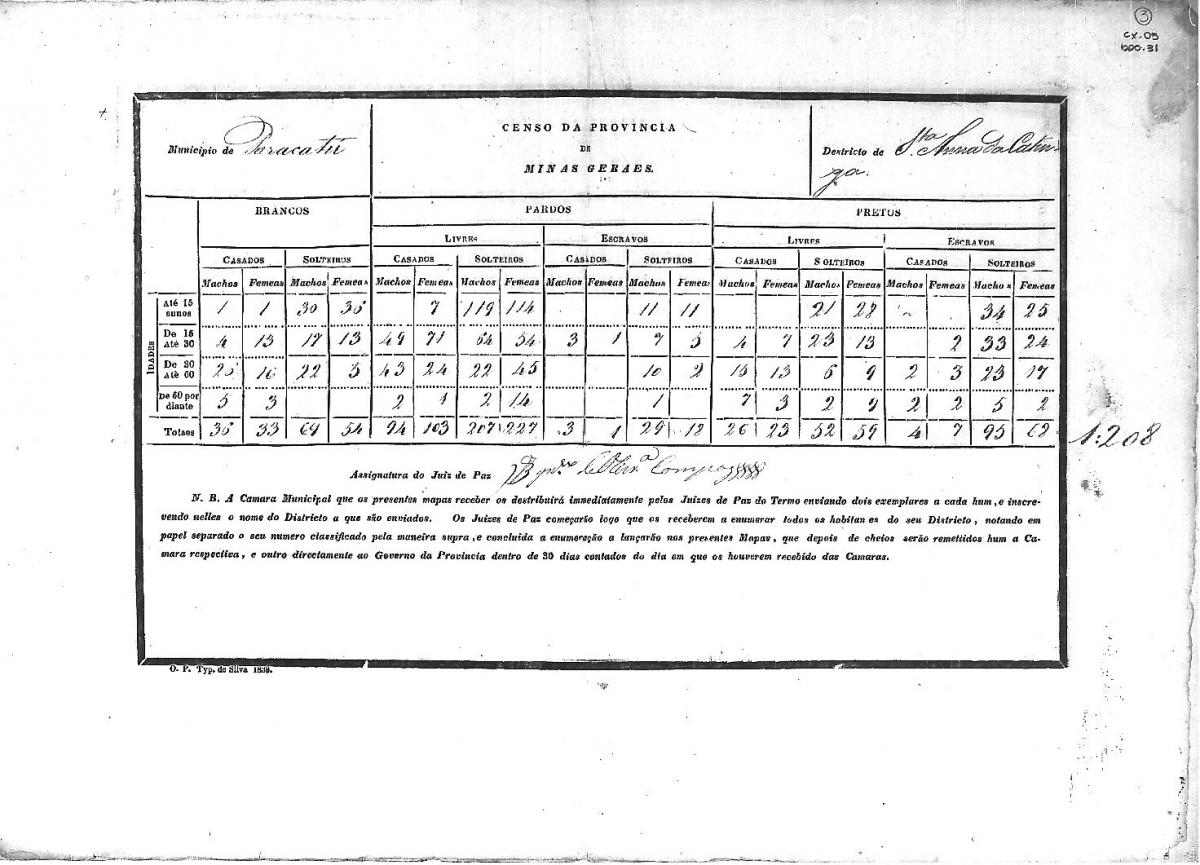 3
cx. 05
doc. 31
Municipio de Paracatú
CENSO DA PROVINCIA
DE
MINAS GERAES.
Destricto de Sta Anna da Catin-
ga.
BRANCOS PARDOS PRETOS
LIVRES ESCRAVOS LIVRES ESCRAVOS
CASADOS SOLTEIROS CASADOS SOLTEIROS CASADOS SOLTEIROS CASADOS SOLTEIROS CASADOS SOLTEIROS
Machos Femeas Machos Femeas Machos Femeas Machos Femeas Machos Femeas Machos Femeas Machos Femeas Machos Femeas Machos Femeas Machos Femeas
IDADES
Até 15 annos 1 1 30 36 7 119 114 11 11 21 28 34 25
De 15 Até 30 4 13 17 13 49 71 64 54 3 1 7 5 4 7 23 13 2 33 24
De 30 Até 60 25 16 22 5 43 24 22 45 10 2 15 13 6 9 2 3 23 17
De 60 por diante 5 3 2 1 2 14 1 7 3 2 9 2 2 5 2
Totaes 35 33 69 54 94 103 207 227 3 1 29 18 26 23 52 59 4 7 95 68
1:208
Assignatura do Juiz de Paz
N. B. A Camara Municipal que os presentes mapas receber os destribuirá immediatamente pelos Juizes de Paz do Termo enviando dois exemplares a cada hum, e inscre-
vendo nelles o nome do Districto a que são enviados. Os Juizes de Paz começarão logo que os receberem a enumerar todos os habitan es do seu Districto, notando em
papel separado o seu numero classificado pela maneira supra, e concluida a enumeração a lançarão nos presentes Mapas, que depois de cheios serão remettidos hum a Ca-
mara respectiva, e outro directamente ao Governo da Provincia dentro de 30 dias contados do dia em que os houverem recebido das Camaras.
O. P. Typ. de Silva 1838.